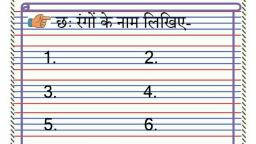 छः रंगों के नाम लिखिए-
1. 2.
3. 4.
5. 6.